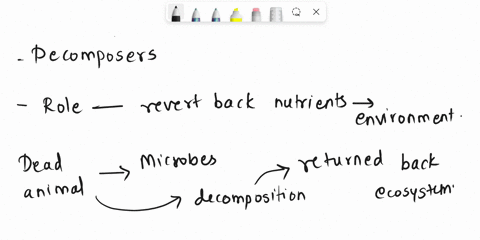 - Decomposers
- Role — revert back nutrients → environment.
Dead animal → Microbes
decomposition → returned back ecosystem.